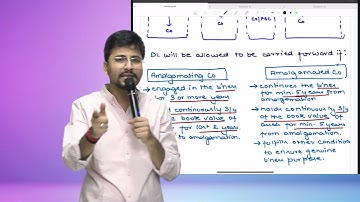 Co Co Co/PSC Co
DL will be allowed to be carried forward if:
Amalgamating Co
→ engaged in the b'ness
3 or more years
continuously 3/4
book value of
for last 2 years
to amalgamation.
Amalgamated Co
→ continues the b'ness
for min. 5 years from
amalgamation
→ holds continuously 3/4
of the book value of
assets for min. 5 years
from amalgamation.
→ fulfills other condition
to ensure genuine
b'ness purpose.